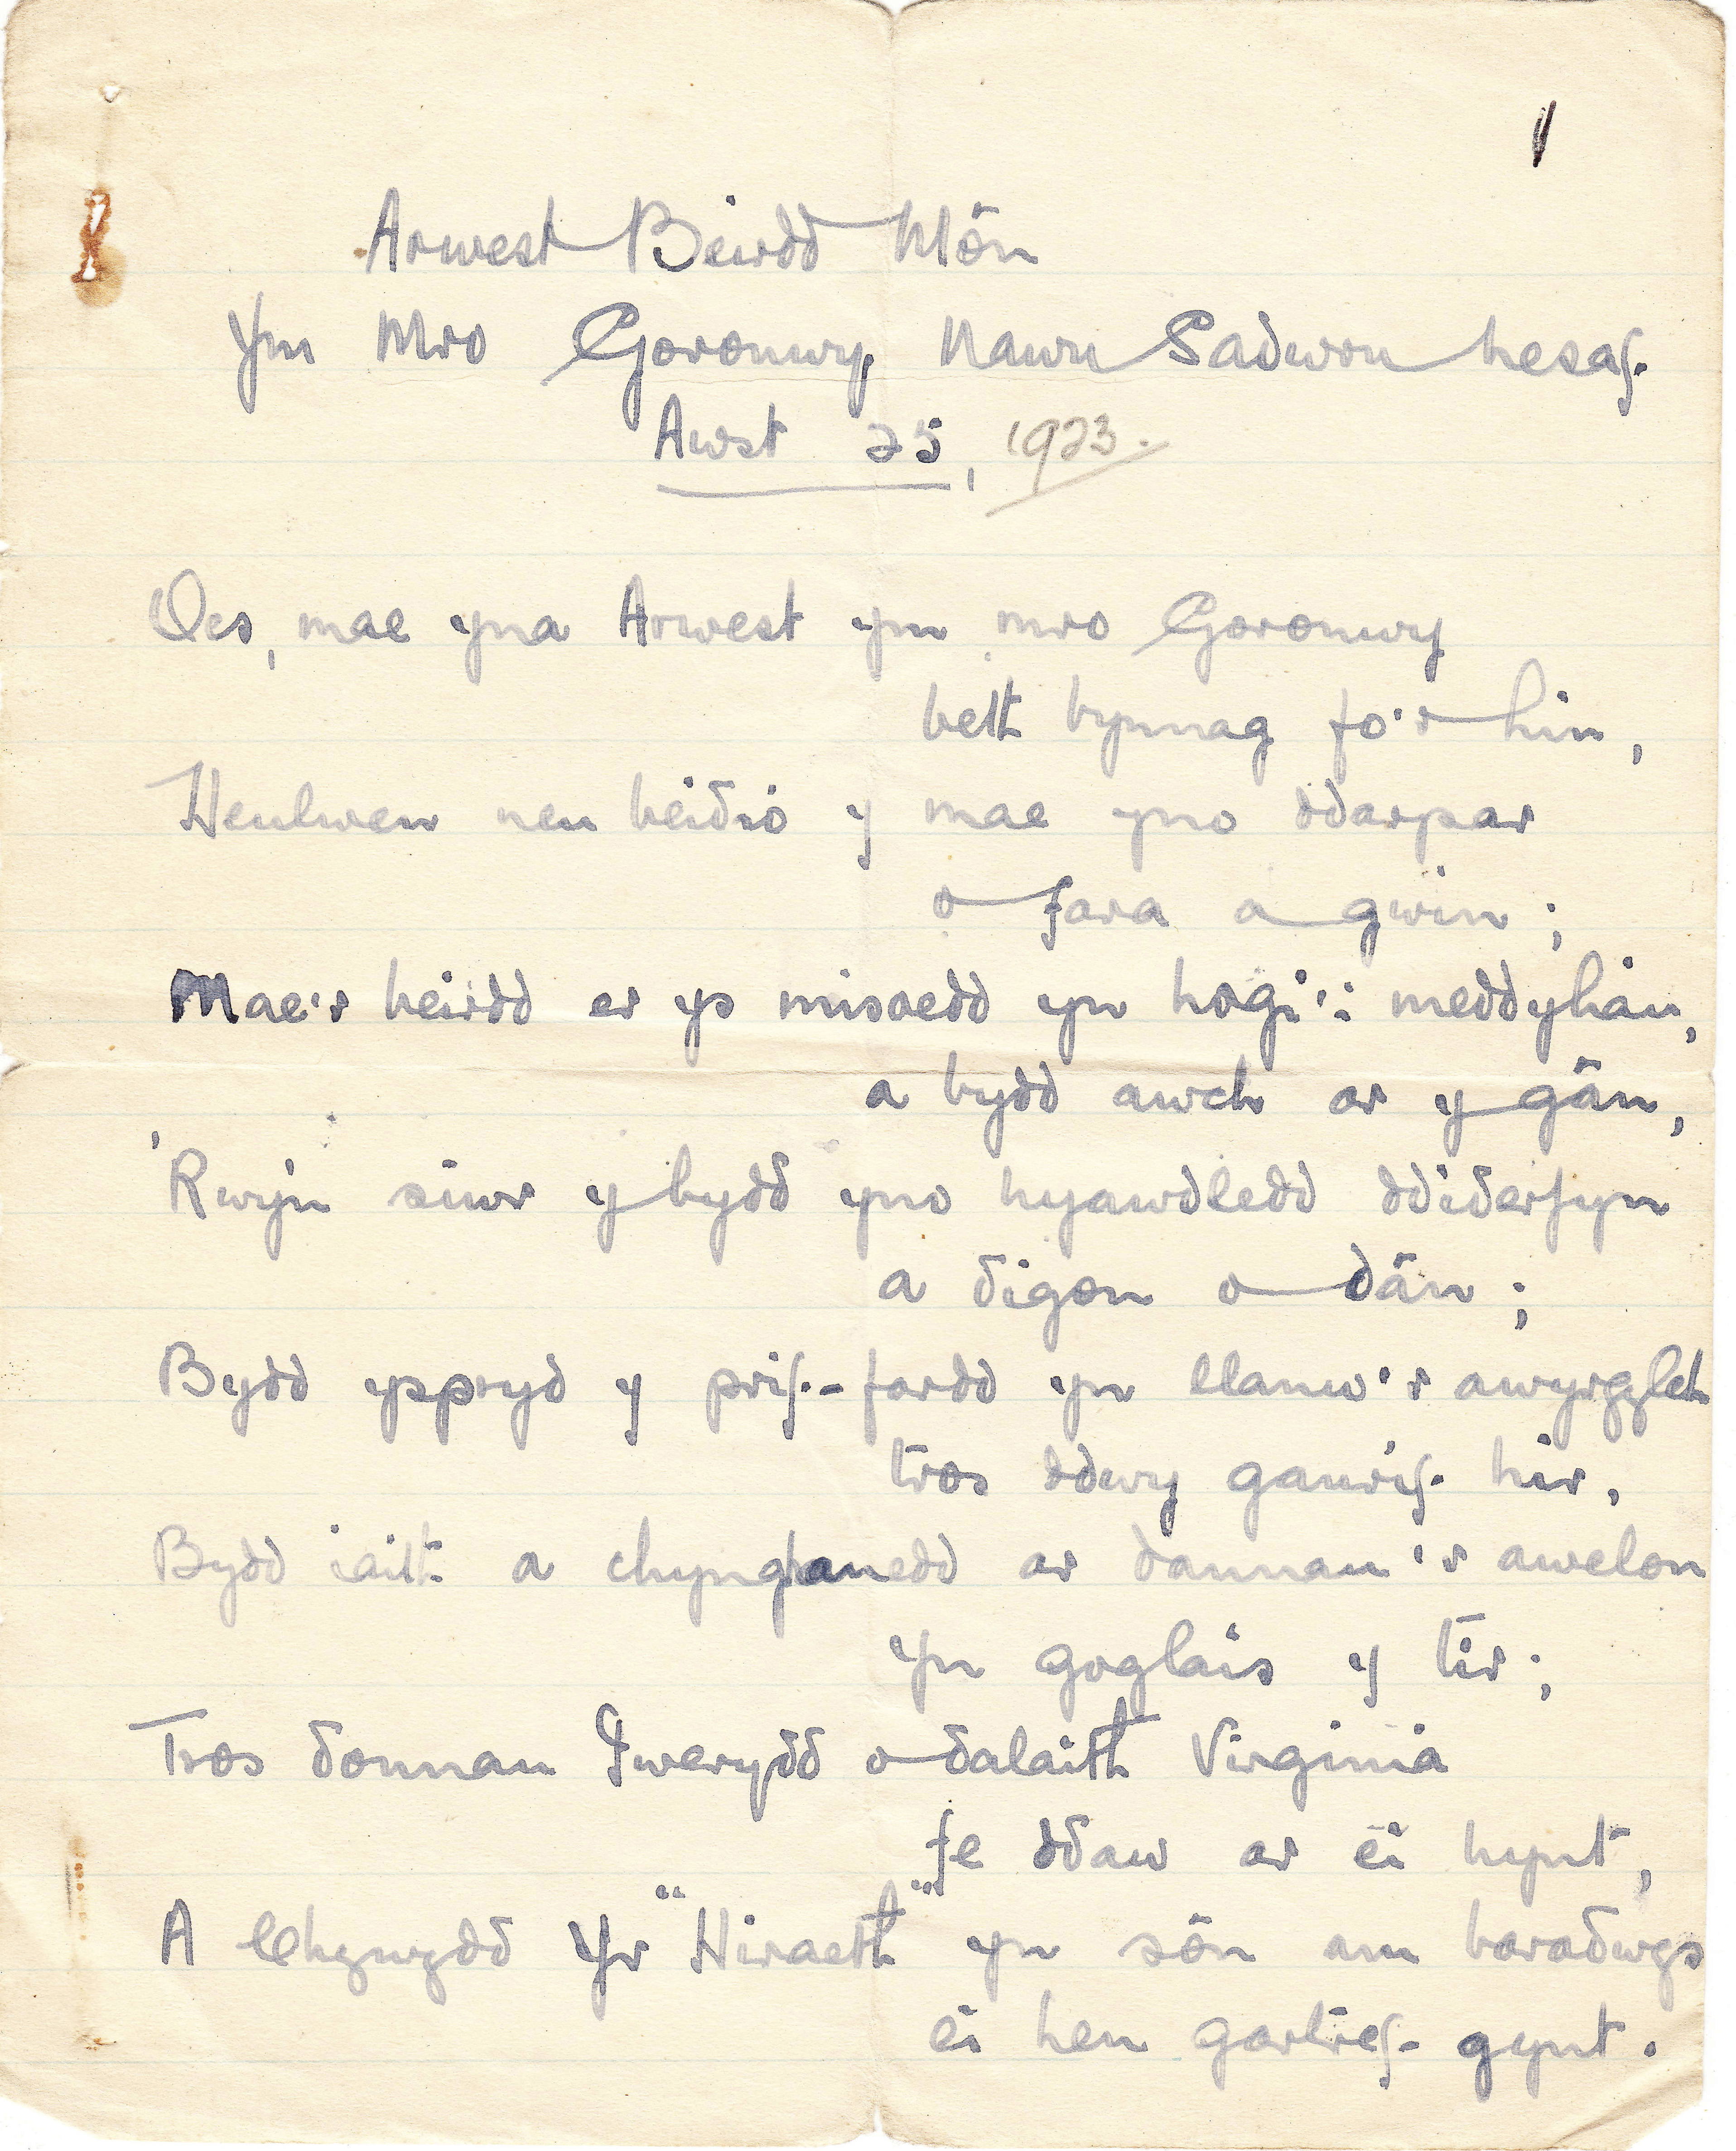 1
Arwest Beirdd Môn
Ym Mro Goronwy, Nawn Sadwrn nesaf.
Awst 25, 1923.
Oes, mae yna Arwest ym mro Goronwy
beth bynnag fo'r hin,
Heulwen neu beidio y mae yno ddarpar
o fara a gwin;
Mae'r beirdd er ys misoedd yn hogi'i meddyliau,
a bydd awch ar y gân,
'Rwy'n siwr y bydd yno hyawdledd ddiderfyn
a digon o dân;
Bydd yspryd y prif-fardd yn llanw'r awyrgylch
tros ddwy ganrif hir,
Bydd iaith a chynghanedd ar dannau'r awelon
yn goglais y tir;
Tros donnau Iwerydd o dalaith Virginia
fe ddaw ar ei hynt,
A chywydd Yr "Hiraeth" yn sôn am baradwys
ei hen gartref gynt.